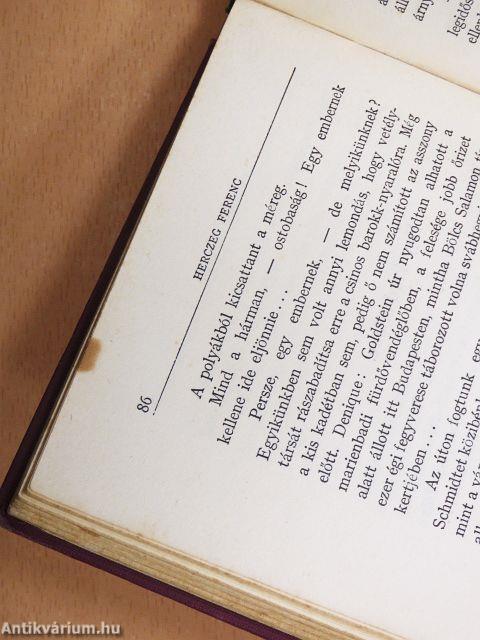 86
HERCZEG FERENC
A polyákból kicsattant a méreg.
Mind a hárman, — ostobaság! Egy embernek
kellene ide eljönnie...
Persze, egy embernek, — de melyikünknek?
Egyikünkben sem volt annyi lemondás, hogy vetély-
társát rászabadítsa erre a csinos barokk-nyaralóra. Még
a kis kadétban sem, pedig ő nem számított az asszony
előtt. Denique: Goldstein úr nyugodtan alhatott a
marienbadi fürdővendéglőben, a felesége jobb őrizet
alatt állott itt Budapesten, mintha Bölcs Salamon
ezer égi fegyverese táborozott volna
kertjében...
Az úton fogtunk
Schmidtet
mint a
legidős
Antikvárium.hu